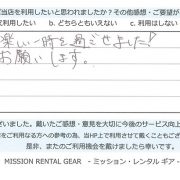 ご当店を利用したいと思われましたか?その他感想・ご要望が
く利用したい b. どちらともいえない c. 利用はしない
楽しい一時を過ごせました!
お願いします。
ざいました。戴いたご感想・意見を大切に今後のサービス向上
ご利用になる方への参考の為、当HP上で利用させて戴くこともござ
是非、またのご利用機会を戴けましたら幸いです。
MISSION RENTAL GEAR - ミッション・レンタル ギア -